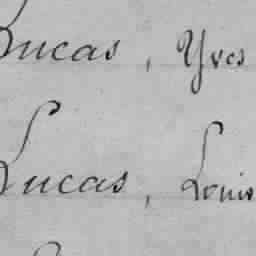 Lucas, Yves
Lucas, Louis